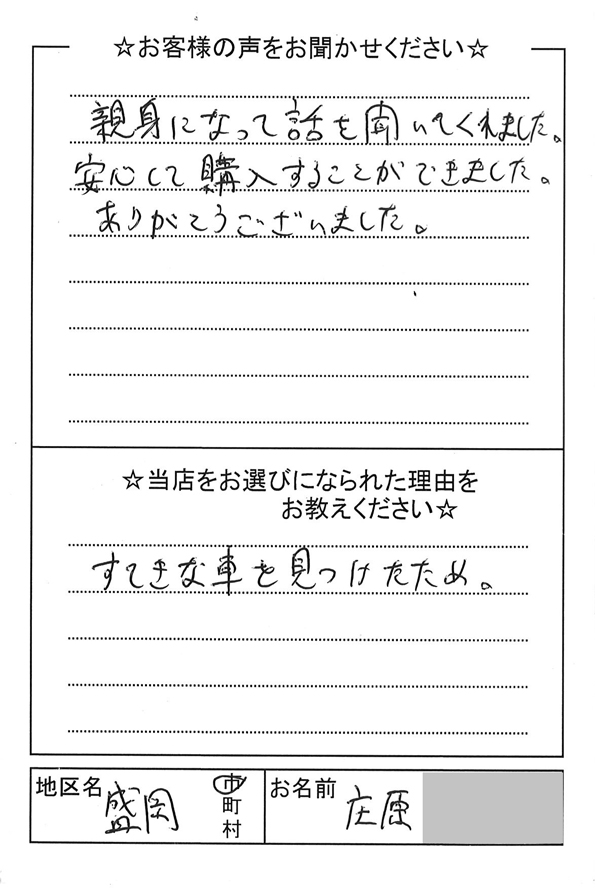 ☆お客様の声をお聞かせください☆
親身になって話を聞いてくれました。
安心して購入することができました。
ありがとうございました。
☆当店をお選びになられた理由を
お教えください☆
すてきな車を見つけたため。
地区名 盛岡 市
町
村
お名前 庄原